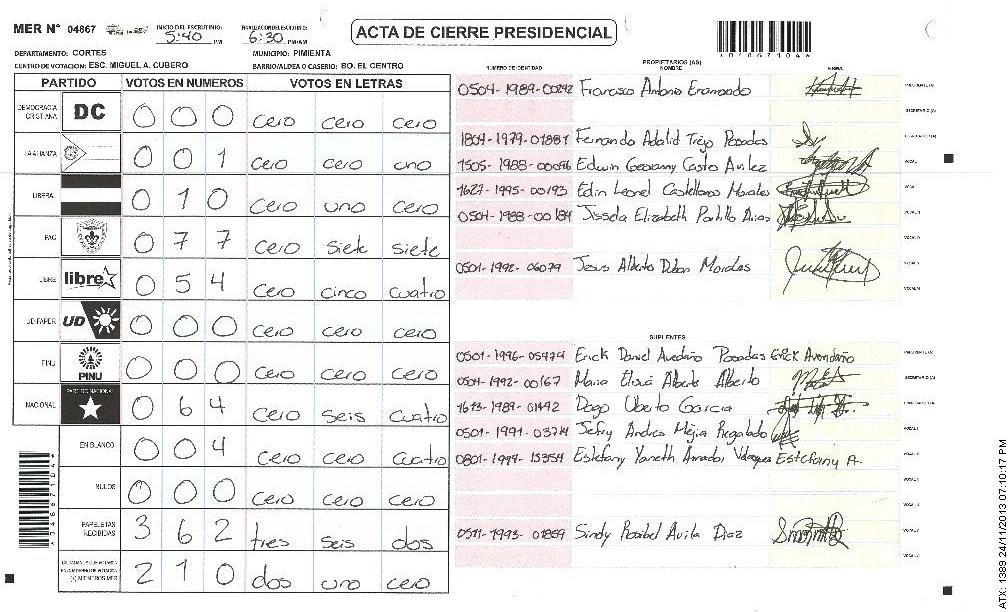 MER N° 04667 INICIO DEL ESCRUTINIO: 5:40 PM FINALIZACION ESCRUTINIO: 6:30 PM/AM
ACTA DE CIERRE PRESIDENCIAL
DEPARTAMENTO: CORTES MUNICIPIO: PIMIENTA
CENTRO DE VOTACION: ESC. MIGUEL A. CUBERO BARRIO/ALDEA O CASERIO: BO. EL CENTRO
PARTIDO VOTOS EN NUMEROS VOTOS EN LETRAS
DEMOCRACIA CRISTIANA DC 0 0 0 cero cero cero
LA ALIANZA 0 0 1 cero cero uno
LIBERAL 0 1 0 cero uno cero
PAC 0 7 7 cero siete siete
LIBRE libre 0 5 4 cero cinco cuatro
UD-FAPER UD 0 0 0 cero cero cero
PINU PINU 0 0 0 cero cero cero
NACIONAL PARTIDO NACIONAL 0 6 4 cero seis cuatro
EN BLANCO 0 0 4 cero cero cuatro
NULOS 0 0 0 cero cero cero
PAPELETAS RECIBIDAS 3 6 2 tres seis dos
CIUDADANOS QUE VOTARON EN CUADERNO DE VOTACION (+) MIEMBROS MER 2 1 0 dos uno cero
PROPIETARIOS (AS)
NUMERO DE IDENTIDAD NOMBRE FIRMA
0504-1989-00242 Francisco Antonio PRESIDENTE (A)
SECRETARIO (A)
1804-1979-01887 Fernando Adalid Trejo Posadas
1505-1988-00096 Edwin Geovanny Casto Avilez VOCAL I
1627-1995-00193 Edin Leonel Castellano Morales
0504-1988-00184 Jissela Elizabeth Portillo Arias
0501-1992-06079 Jesus Alberto Morales
SUPLENTES
0501-1996-05474 Erick Daniel Avedaño Posadas Erick Avendaño PRESIDENTE (A)
0504-1992-00167 Maria Alberto Alberto SECRETARIO (A)
1673-1989-01492 Dago Uberto Garcia
0501-1991-03714 Jefry Andres Mejia Regalado VOCAL I
0801-1994-15354 Estefany Yaneth Amador Estefany A.
0511-1993-01859 Sindy Rosibel Avila Diaz
ATX: 1389 24/11/2013 07:10:17 PM